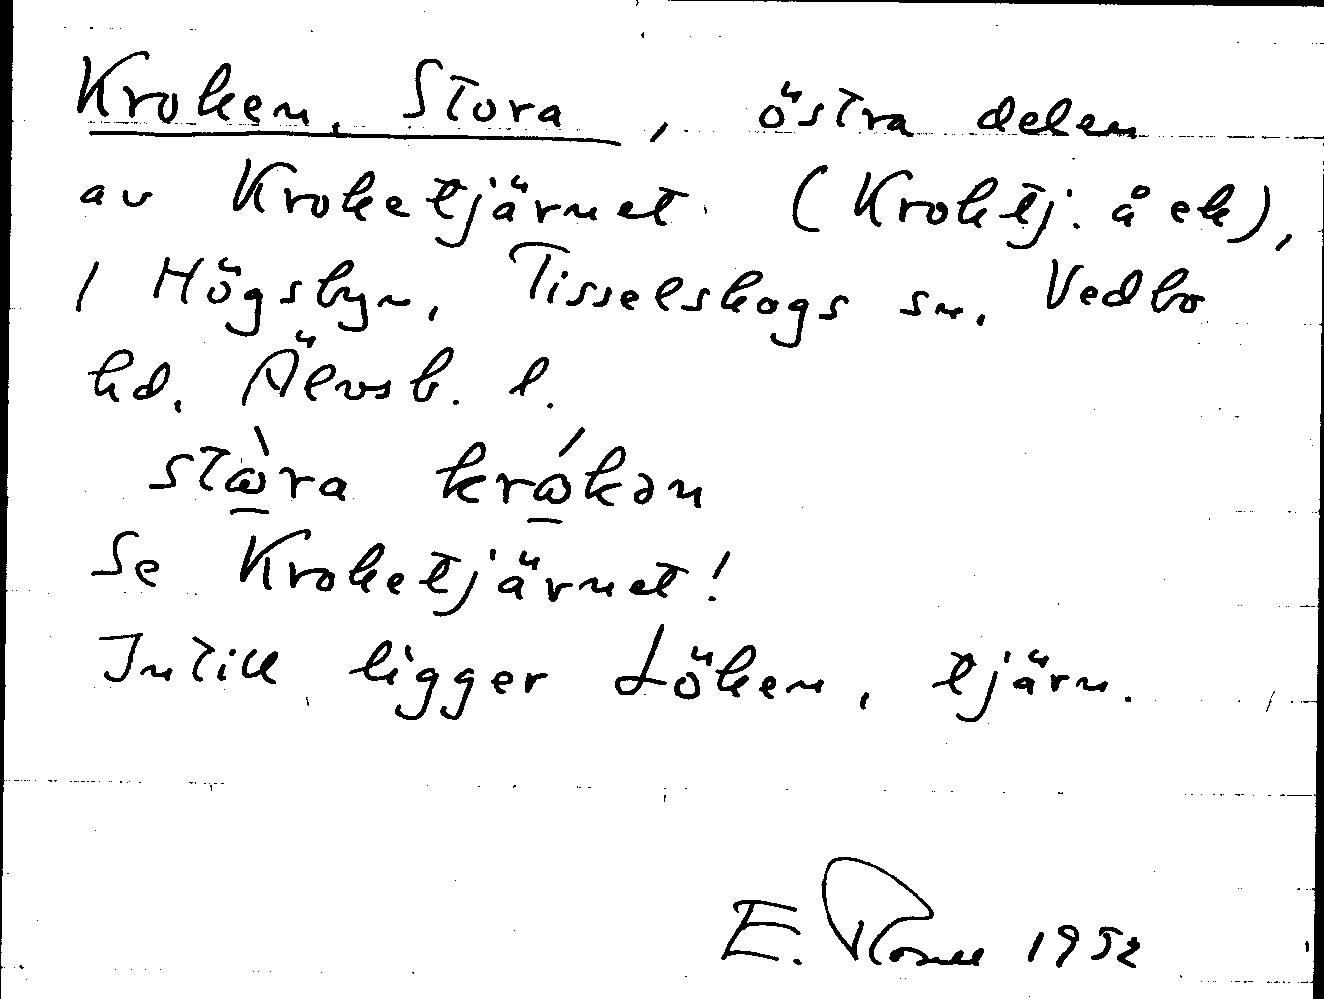 Kroken, Stora, östra delen
av Kroketjärnet (Kroktj. å ek),
i Högsbyn, Tisselskogs sn, Vedbo
hd, Älvsb. l.
stὼ̱ra krώ̱kən
Se Kroketjärnet!
Intill ligger Löken, tjärn.
E. 1952